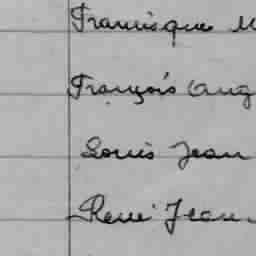 Francisque M
François Aug
Louis Jean
René Jean